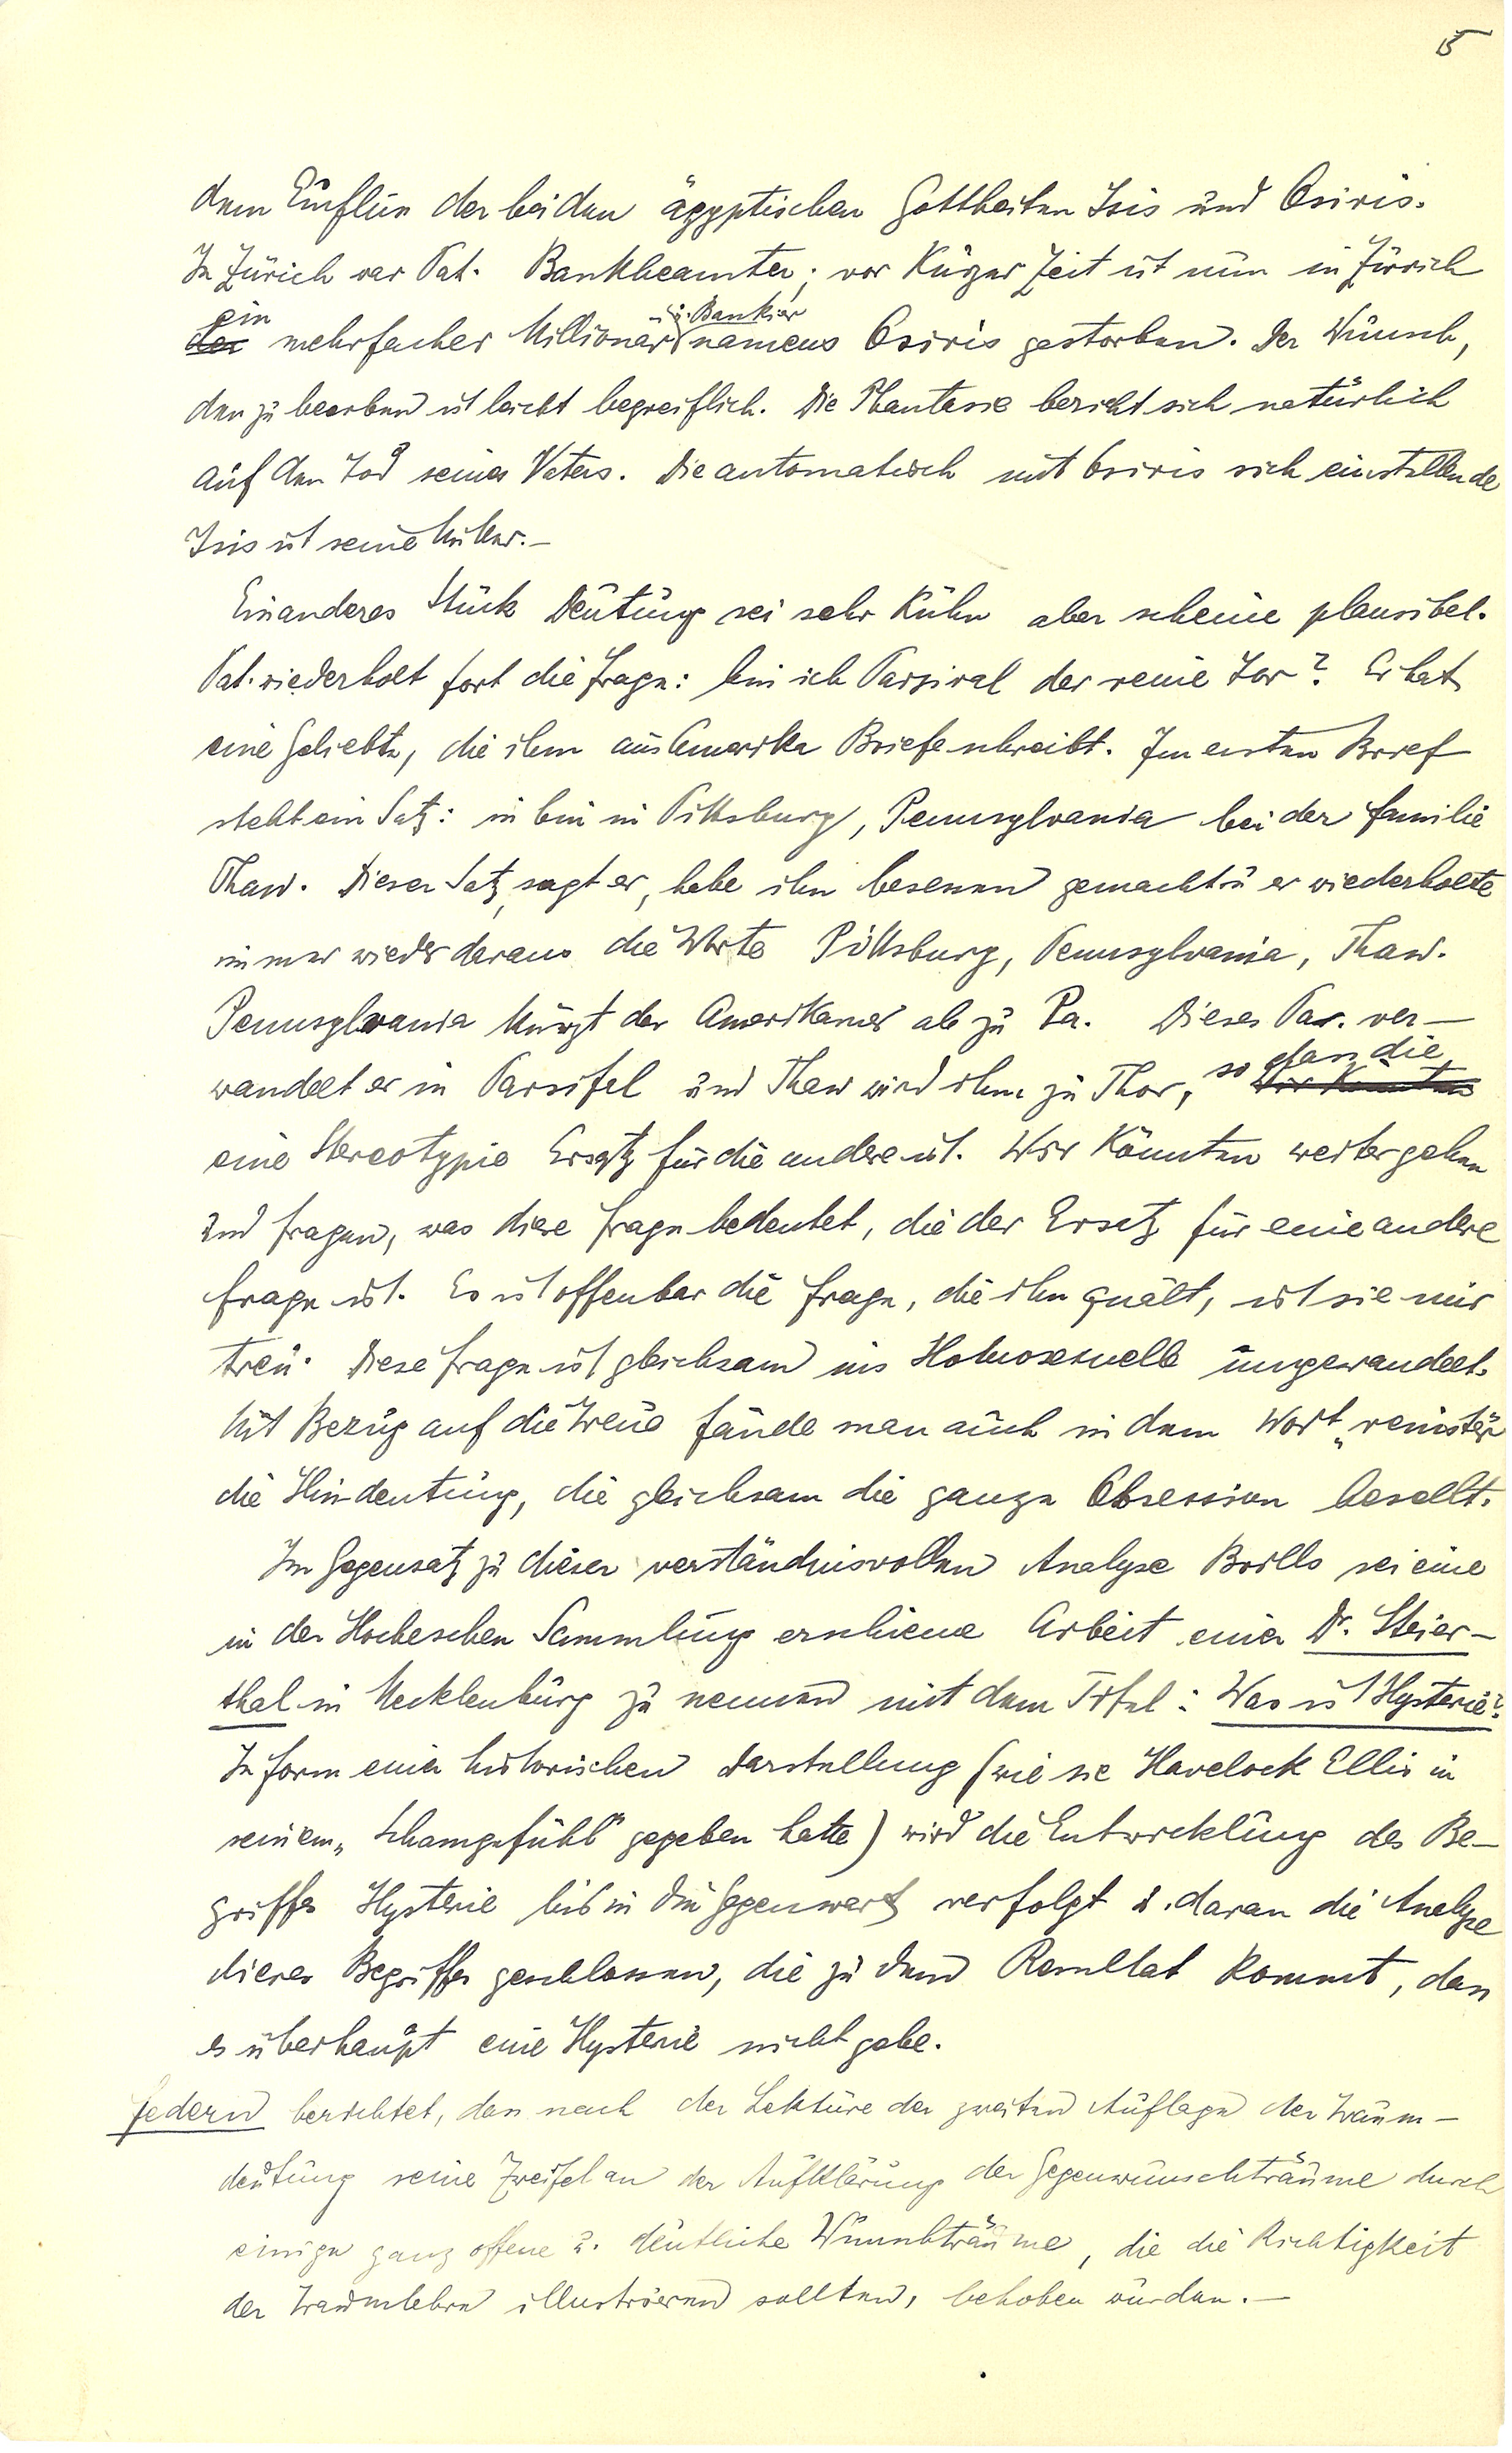 5
dem Einfluss der beiden ägyptischen Gottheiten Isis und Osiris.
In Zürich war Pat. Bankbeamter; vor kurzer Zeit ist nun in Zürich
ein u. Bankier
der mehrfacher Millionär namens Osiris gestorben. Der Wunsch,
den zu beerben ist leicht begreiflich. Die Phantasie bezieht sich natürlich
auf den Tod seines Vaters. Die automatisch mit Osiris sich einstellende
Isis ist seine Mutter. –
Ein anderes Stück Deutung sei sehr kühn aber scheine plausibel.
Pat. wiederholt fort die Frage: bin ich Parsival der reine Tor? Er hat
eine Geliebte, die ihm aus Amerika Briefe schreibt. Im ersten Brief
steht ein Satz: ich bin in Pittsburg, Pennsylvania bei der Familie
Thaw. Dieser Satz, sagt er, habe ihn besessen gemacht u er wiederholte
immer wieder daraus die Worte Pittsburg, Pennsylvania, Thaw.
Pennsylvania kürzt der Amerikaner ab zu Pa. Dieses Pa. ver-
wandelt er in Parsifal und Thaw wird ihm zu Thor, so dass die
eine Stereotypie Ersatz für die andere ist. Wir könnten weitergehen
und fragen, was diese Frage bedeutet, die der Ersatz für eine andere
Frage ist. Es ist offenbar die Frage, die ihn quält, ist sie mir
treu. Diese Frage ist gleichsam ins Homosexuelle umgewandelt.
Mit Bezug auf die Treue fände man auch in dem Wort
die Hindeutung, die gleichsam die ganze Obsession beseelt.
Im Gegensatz zu dieser verständnisvollen Analyse Brills sei eine
in der Hocheschen Sammlung erschiene Arbeit eines Dr. Steier-
thal in Mecklenburg zu nennen mit dem Titel: Was ist Hysterie?
In Form einer historischen Darstellung (wie sie Havelock Ellis in
seinem „Schamgefühl“ gegeben hatte) wird die Entwicklung des Be-
griffes Hysterie bis in die Gegenwart verfolgt u. daran die Analyse
dieses Begriffes geschlossen, die zu dem Resultat kommt, dass
es überhaupt eine Hysterie nicht gebe.
Federn berichtet, dass nach der Lektüre der zweiten Auflage der Traum-
deutung seine Zweifel an der Aufklärung der Gegenwunschträume durch
einige ganz offene u. deutliche Wunschträume, die die Richtigkeit
der Traumlehre illustrieren sollten, behoben würden. –